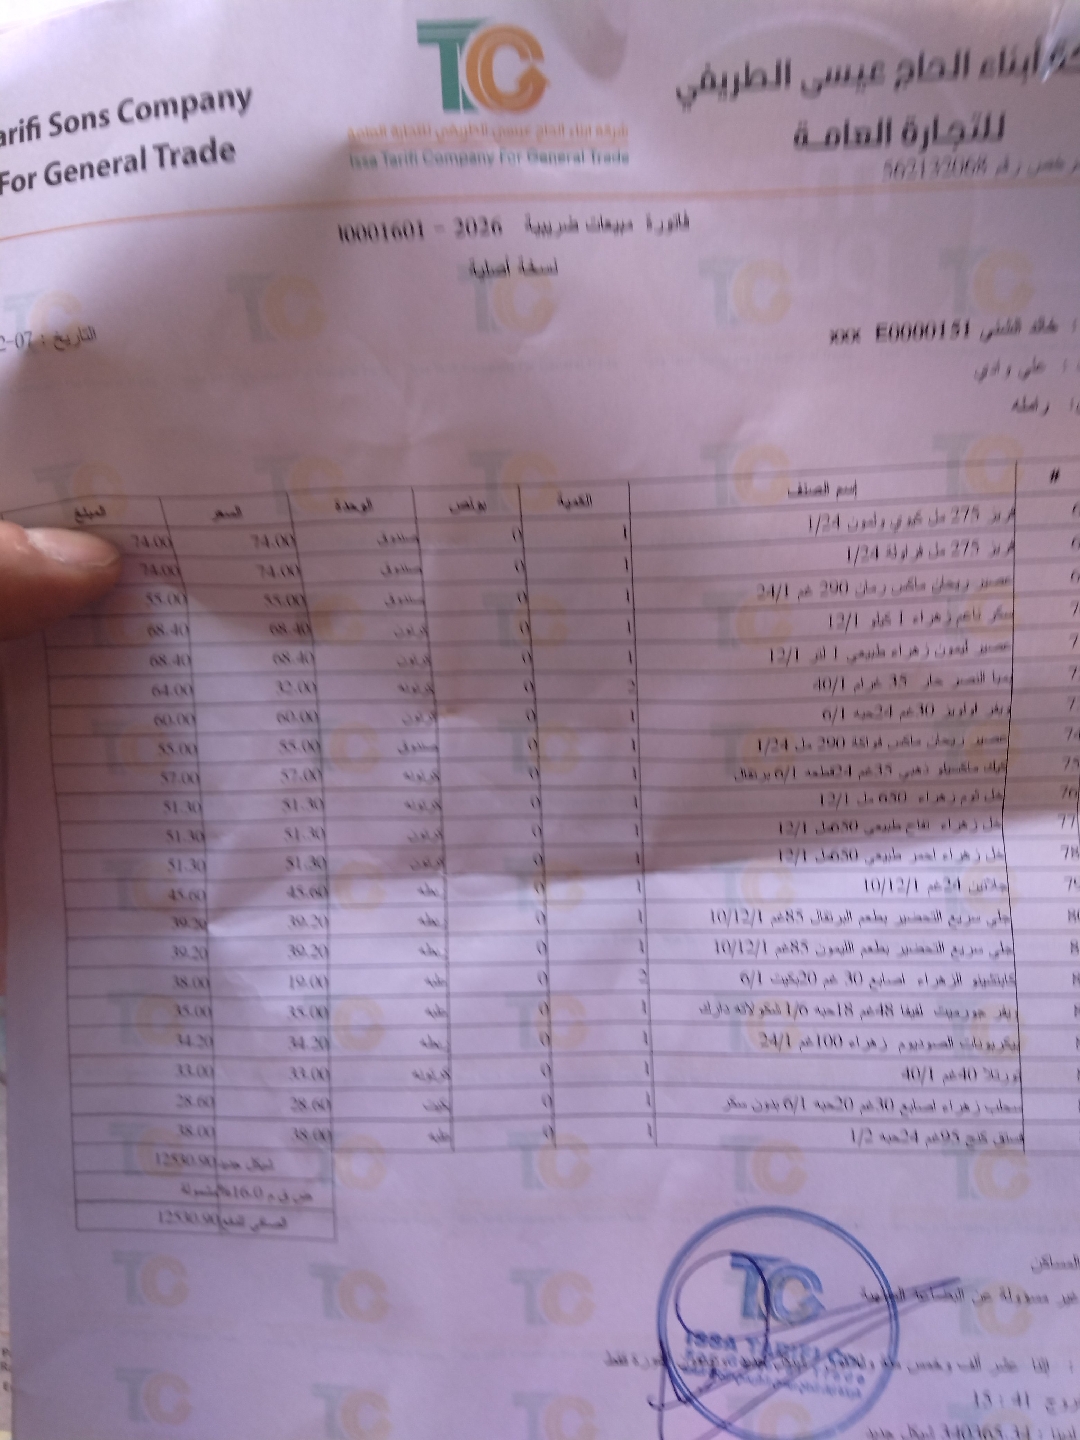 arifi Sons Company
For General Trade
TC
شركة ابناء الحاج عيسى الطريفي للتجارة العامة
Issa Tarifi Company For General Trade
أبناء الحاج عيسى الطريفي
للتجارة العامة
562132068
فاتورة مبيعات ضريبية 2026 - 10001601
نسخة أصلية
التاريخ : 07-
E0000151 xxx
علي وادي
رام الله
# إسم الصنف الكمية بونص الوحدة السعر المبلغ
275 مل كيوي وليمون 1/24 1 0 صندوق 74.00 74.00
275 مل فراولة 1/24 1 0 صندوق 74.00 74.00
عصير ريحان ماكس رمان 290 غم 24/1 1 0 صندوق 55.00 55.00
سكر ناعم زهراء 1 كيلو 12/1 1 0 كرتون 68.40 68.40
عصير ليمون زهراء طبيعي 1 لتر 12/1 1 0 كرتون 68.40 68.40
حار 35 غرام 40/1 2 0 كرتونة 32.00 64.00
ويفر لواويز 30غم 24حبه 6/1 1 0 كرتون 60.00 60.00
عصير ريحان ماكس فواكة 290 مل 1/24 1 0 صندوق 55.00 55.00
75 كيك ذهبي 35غم 24قطعه 6/1 برتقال 1 0 كرتونة 57.00 57.00
76 خل ثوم زهراء 650 مل 12/1 1 0 كرتونة 51.30 51.30
77 خل زهراء تفاح طبيعي 650مل 12/1 1 0 كرتون 51.30 51.30
78 خل زهراء احمر طبيعي 650مل 12/1 1 0 كرتون 51.30 51.30
جلاتين 24غم 10/12/1 1 0 ربطه 45.60 45.60
جلي سريع التحضير بطعم البرتقال 85غم 10/12/1 1 0 ربطه 39.20 39.20
جلي سريع التحضير بطعم الليمون 85غم 10/12/1 1 0 ربطه 39.20 39.20
الزهراء اصابع 30 غم 20بكيت 6/1 2 0 علبه 19.00 38.00
ويفر جورميت لفيفا 48غم 18حبه 1/6 شكولاته دارك 1 0 علبه 35.00 35.00
بيكربونات الصوديوم زهراء 100غم 24/1 1 0 ربطه 34.20 34.20
40غم 40/1 1 0 كرتونة 33.00 33.00
سحلب زهراء اصابع 30غم 20حبه 6/1 بدون سكر 1 0 بكيت 28.60 28.60
95غم 24حبه 1/2 1 0 علبه 38.00 38.00
شيكل جديد 12530.90
ض ق م 16.0% مشمولة
الصافي للدفع 12530.90
غير مسؤولة عن البضاعة
ISSA TARIFI CO.
15:41
340365.34 شيكل جديد